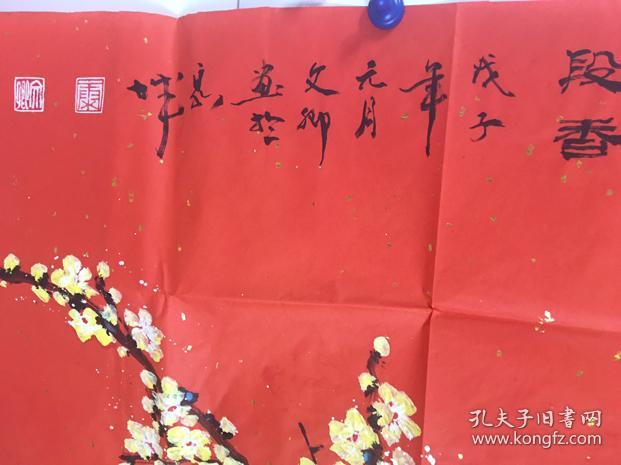 段香
戊子
年
元月
文卿
画於
京
城
康
孔夫子旧书网
www.kongfz.com